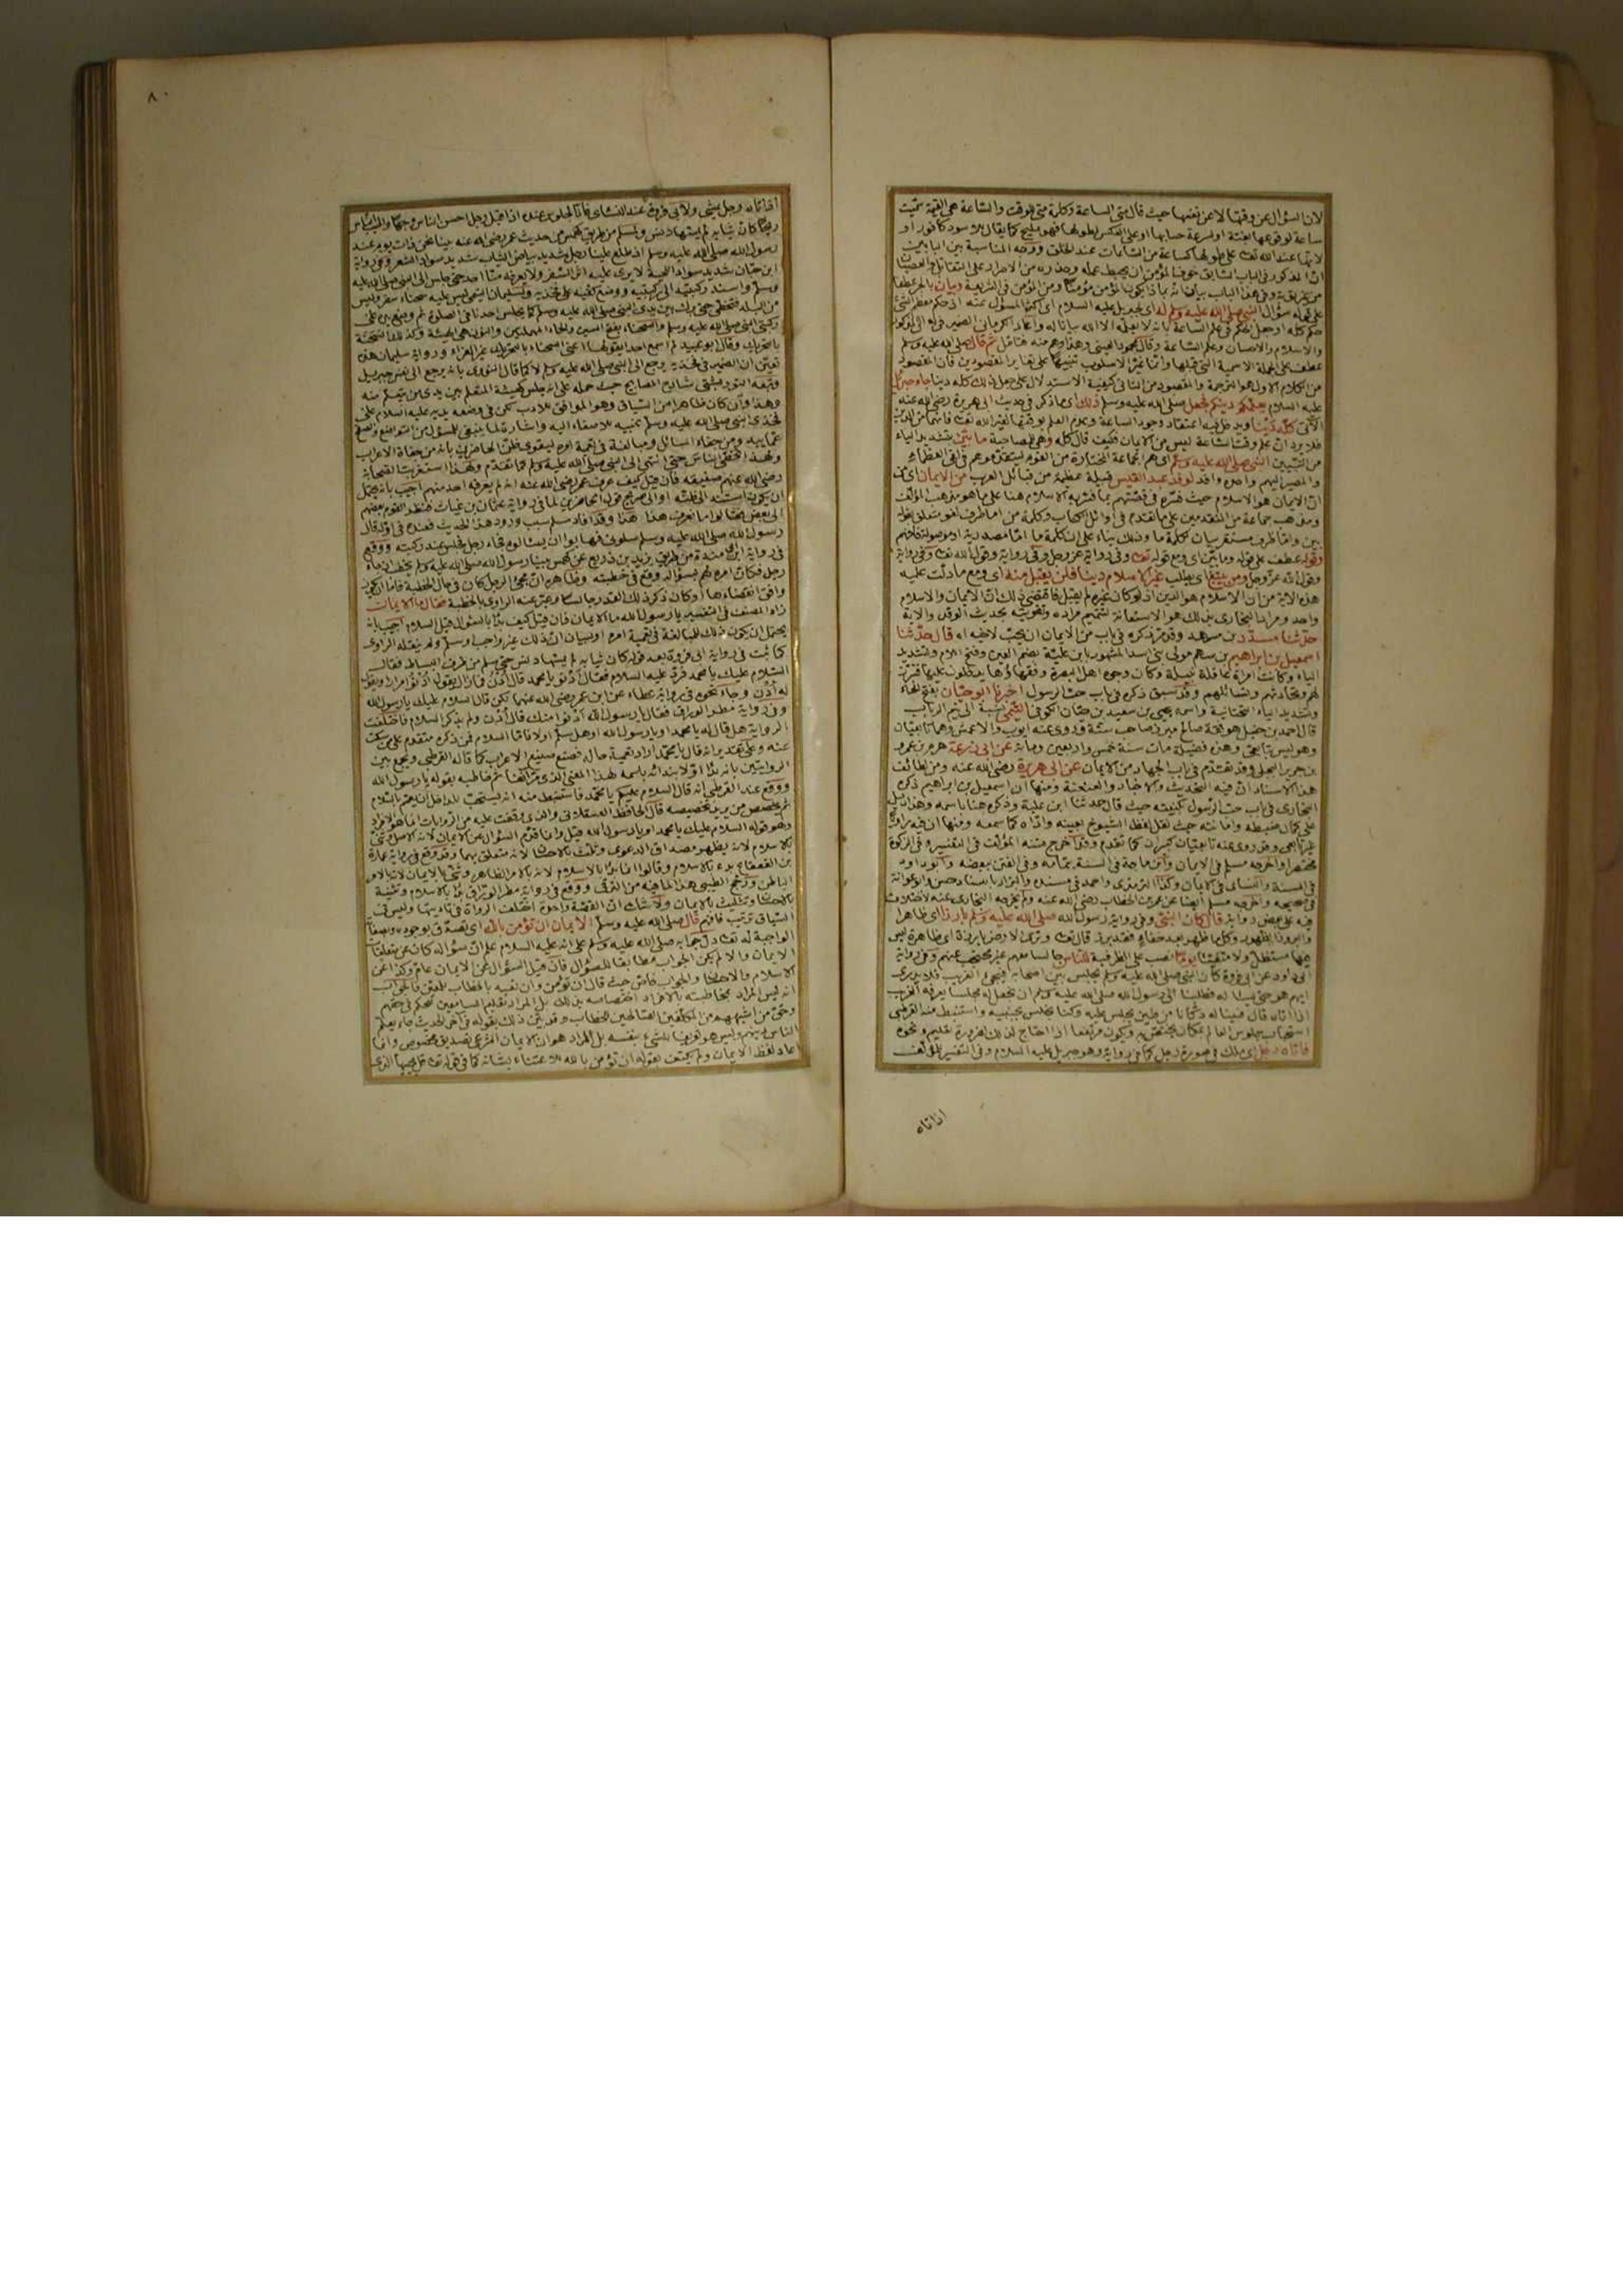 لان السؤال عن وقتها لا عن نفسها حيث قال متى الساعة وكلمة متى للوقت والساعة هي القيمة سميت
ساعة لوقوعها بغتة او لسرعة حسابها او على العكس لطولها فهو مليح كما يقال للاسود كافور او
لانها عند الله تعا على طولها كساعة من الساعات عند الخلق ووجه المناسبة بين البابين
ان المذكور في الباب السابق خوف المؤمن ان يحبط عمله وحذره من الاصرار على التقاتل والعصيان
من غير توبة وفي هذا الباب بيان انه بماذا يكون المؤمن مؤمنا ومن المؤمن في الشريعة وبيان بالجر عطفا
على قوله سؤال النبي صلى الله عليه وسلم له اي لجبريل عليه السلام اي اكثر المسؤل عنه اذ حكم معظم الشئ
حكم كله او جعل الحكم في علم الساعة بانه لا يعلمه الا الله بيانا له
والاسلام والاحسان وعلم الساعة وقال محمود العيني وهذا وهم منه فتامل ثم قال صلى الله عليه وسلم
عطف على الجملة الاسمية التي قبلها وانما غير الاسلوب تنبيها على تغاير المقصودين فان المقصود
من الكلام الاول هو الترجمة والمقصود من الثاني كيفية الاستدلال على جعل ذلك كله دينا جاء جبريل
عليه السلام يعلمكم دينكم فجعل صلى الله عليه وسلم ذلك اي ما ذكر في حديث ابي هريرة رضي الله عنه
الآتي كله دينا ويدخل فيه اعتقاد وجود الساعة وعدم العلم بوقتها لغير الله تعا فانهما من الدين
فلا يرد ان علم وقت الساعة ليس من الايمان فكيف قال كله وهي للمصاحبة ما بين بتشديد الياء
من التبيين النبي صلى الله عليه وسلم اي هم الجماعة المختارة من القوم ليتقدموهم في لقي العظماء
والمصير اليهم واحده وافد لوفد عبد القيس قبيلة عظيمة من قبائل العرب من الايمان اي من
ان الايمان هو الاسلام حيث فسره في قصتهم بما فسر به الاسلام هنا على ما هو مذهب المؤلف
ومذهب جماعة من المتقدمين على ما تقدم في اوائل الكتاب وكلمة من اما ظرف لغو متعلق بقوله
بين واما ظرف مستقر بيان لكلمة ما وذلك بناء على ان كلمة ما اما مصدرية او موصولة فافهم
وقوله عطف على قوله وما بين اي ومع قوله تعا وفي رواية عز وجل وفي رواية وقول الله تعا وفي رواية
وقول الله عز وجل ومن يبتغ اي يطلب غير الاسلام دينا فلن يقبل منه اي ومع ما دلت عليه
هذه الاية من ان الاسلام هو الدين اذ لو كان غيره لم يقبل فاقتضى ذلك ان الايمان والاسلام
واحد ومراد البخاري بذلك هو الاستعانة لتتميم مراده وتقويته بحديث الوفد والاية
حدثنا مسدد بن مسرهد وقد مر ذكره في باب من الايمان ان يحب لاخيه اه قال حدثنا
اسمعيل بن ابراهيم بن سهم مولى بني اسد المشهور بابن علية بضم العين وفتح اللام وتشديد
الياء وكانت امراة عاقلة نبيلة وكان وجوه اهل البصرة وفقهاؤها يدخلون عليها فتبرز
لهم وتحادثهم وتسائلهم وقد سبق ذكره في باب حب الرسول اخبرنا ابو حيان بفتح الحاء
وتشديد الياء التحتانية واسمه يحيى بن سعيد بن حيان الكوفي التيمي نسبة الى تيم الرباب
قال احمد بن عبد الله هو ثقة صالح مبرز صاحب سنة وروى عنه ايوب والاعمش وهما تابعيان
وهو ليس بتابعي وهذه فضيلة مات سنة خمس واربعين ومائة عن ابي زرعة هرم بن عمرو
بن جرير البجلي وقد تقدم في باب الجهاد من الايمان عن ابي هريرة رضي الله عنه ومن لطائف
هذا الاسناد ان فيه التحديث والاخبار والعنعنة ومنها ان اسمعيل بن ابراهيم ذكره
البخاري في باب حب الرسول بكنيته حيث قال حدثنا ابن علية وذكره هنا باسمه وهذا دليل
على كمال ضبطه وامانته حيث نقل لفظ الشيوخ بعينه واداه كما سمعه ومنها ان فيه راويا
غير تابعي وقد روى عنه تابعيان كبيران كما تقدم وقد اخرج متنه المؤلف في التفسير وفي الزكوة
مختصرا واخرجه مسلم في الايمان وابن ماجة في السنة بتمامه وفي الفتن ببعضه وابو داود
في السنة والنسائي في الايمان وكذا الترمذي واحمد في مسنده والبزار باسناد حسن وابو عوانة
في صحيحه واخرجه مسلم ايضا عن عمر بن الخطاب رضي الله عنه ولم يخرجه البخاري عنه لاختلاف
فيه على بعض رواية قال كان النبي وفي رواية رسول الله صلى الله عليه وسلم بارزا اي ظاهرا
والبروز الظهور وكل ما ظهر بعد خفاء فقد برز قال تعا وترى الارض بارزة اي ظاهرة ليس
فيها مستظل ولا متفيئا يوما نصب على الظرفية للناس جالسا معهم غير محتجب عنهم وفي رواية
ابي داود عن ابي فروة كان النبي صلى الله عليه وسلم يجلس بين اصحابه فيجئ الغريب فلا يدري
ايهم هو حتى يسأله فطلبنا الى رسول الله صلى الله عليه وسلم ان نجعل له مجلسا يعرفه الغريب
اذا اتاه قال فبنينا له دكانا من طين يجلس عليه وكنا نجلس بجنبيه واستنبط منه القرطبي
استحباب جلوس العالم بمكان يختص به ويكون مرتفعا اذا احتاج لذلك لضرورة تعليم ونحوه
فاتاه رجل اي ملك في صورة رجل كما في رواية وهو جبريل عليه السلام وفي التفسير للمؤلف
اذ اتاه
٨٠
اذ اتاه رجل يمشي ولابي فروة عند النسائي فانا لجلوس عنده اذ اقبل رجل احسن الناس وجها واطيب الناس
ريحا كان ثيابه لم يمسها دنس ولمسلم من طريق كهمس من حديث عمر رضي الله عنه بينا نحن ذات يوم عند
رسول الله صلى الله عليه وسلم اذ طلع علينا رجل شديد بياض الثياب شديد سواد الشعر وفي رواية
ابن حبان شديد سواد اللحية لا يرى عليه اثر السفر ولا يعرفه منا احد حتى جلس الى النبي صلى الله عليه
وسلم واسند ركبتيه الى ركبتيه ووضع كفيه على فخذيه ولسليمان التيمي ليس عليه سحناء سفر وليس
من البلد فتخطى حتى برك بين يدي النبي صلى الله عليه وسلم كما يجلس احدنا في الصلوة ثم وضع يده على
ركبتي النبي صلى الله عليه وسلم والسحناء بفتح السين والحاء المهملتين والنون هي الهيئة وكذلك السحنة
بالتحريك وقال ابو عبيد لم اسمع احدا يقولها اعني السحناء بالتحريك غير الفراء ورواية سليمان هذه
تعين ان الضمير في فخذيه يرجع الى النبي صلى الله عليه وسلم لا كما قال النووي بانه يرجع الى نفس جبريل
وتبعه التوربشتي شارح المصابيح حيث حمله على انه جلس كهيئة المتعلم بين يدي من يتعلم منه
وهذا وان كان ظاهرا من السياق وهو الموافق للادب لكن في وضعه يديه عليه السلام على
فخذي النبي صلى الله عليه وسلم تنبيه للاصغاء اليه واشارة لما ينبغي للمسؤل من التواضع والصفح
عما يبدو من جفاء السائل ومبالغة في تعمية امره ليقوى ظن الحاضرين بانه من جفاة الاعراب
ولهذا تخطى الناس حتى انتهى الى النبي صلى الله عليه وسلم كما تقدم ولهذا استغربت الصحابة
رضي الله عنهم صنيعه فان قيل كيف عرف عمر رضي الله عنه انه لم يعرفه احد منهم اجيب بانه يحتمل
ان يكون استند الى ظنه او الى صريح قول الحاضرين لما في رواية عثمان بن غياث فنظر القوم بعضهم
الى بعض فقالوا ما نعرف هذا هذا وقد افاد مسلم سبب ورود هذا الحديث فعنده في اوله قال
رسول الله صلى الله عليه وسلم سلوني فهابوا ان يسئلوه فجاء رجل فجلس عند ركبتيه ووقع
في رواية ابن مندة من طريق يزيد بن ذريع عن كهمس بينا رسول الله صلى الله عليه وسلم يخطب اذ جاء
رجل فكان امره لهم بسؤاله وقع في خطبته وظاهره ان مجئ الرجل كان في حال الخطبة فاما ان يكون
وافق انقضاءها او كان ذكر ذلك القدر جالسا وعبر عنه الراوي بالخطبة فقال ما الايمان
زاد المصنف في التفسير يا رسول الله ما الايمان فان قيل كيف بدأ بالسؤال قبل السلام اجيب بانه
يحتمل ان يكون ذلك للمبالغة في تعمية امره او لبيان ان ذلك غير واجب او سلم ولم ينقله الراوي
كما ثبت في رواية ابي فروة بعد قوله كان ثيابه لم يمسها دنس حتى سلم من طرف البساط فقال
السلام عليك يا محمد فرد عليه السلام فقال ادنو يا محمد قال ادن فما زال يقول ادنو مرارا ويقول
له ادن وجاء نحوه في رواية عطاء عن ابن عمر رضي الله عنهما لكن قال السلام عليك يا رسول الله
وفي رواية مطر الوراق فقال يا رسول الله ادنو منك قال ادن ولم يذكر السلام فاختلفت
الرواية هل قال له يا محمد او يا رسول الله او هل سلم اولا فاما السلام فمن ذكره متقدم على من سكت
عنه وعلى تقدير انه قال يا محمد اراد تعمية حاله فصنع صنيع الاعراب كما قاله القرطبي ويجمع بين
الروايتين بانه بدأ اولا بندائه باسمه لهذا المعنى ثم خاطبه بقوله يا رسول الله
ووقع عند القرطبي انه قال السلام عليكم يا محمد فاستنبط منه انه يستحب للداخل ان يعم بالسلام
ثم يخصص من يريد تخصيصه قال الحافظ العسقلاني والذي وقفت عليه من الروايات انما هو الافراد
وهو قوله السلام عليك يا محمد او يا رسول الله قيل وانما قدم السؤال عن الايمان لانه الاصل وثنى
بالاسلام لانه يظهر مصداق الدعوى وثلث بالاحسان لانه متعلق بهما وقد وقع في رواية عمارة
بن القعقاع بدء بالاسلام وقالوا انما بدأ بالاسلام لانه بالامر الظاهر وثنى بالايمان لانه بالامر
الباطن ورجح الطيبي هذا لما فيه من الترقي ووقع في رواية مطر الوراق بدأ بالاسلام وتثنية
بالاحسان وتثليث بالايمان ولا شك ان القصة واحدة اختلفت الرواة في تاديتها وليس في
السياق ترتيب فافهم قال صلى الله عليه وسلم الايمان ان تؤمن بالله اي تصدق بوجوده وبصفاته
الواجبة له تعا دل جوابه صلى الله عليه وسلم على انه عليه السلام علم ان سؤاله كان عن متعلقات
الايمان والا لم يكن الجواب مطابقا للسؤال فان قيل السؤال عن الايمان عام وكذا عن
الاسلام والاحسان والجواب خاص حيث قال ان تؤمن وان تعبد بالخطاب للمعين فالجواب
انه ليس المراد بمخاطبته بالافراد اختصاصه بذلك بل المراد تعليم السامعين الحكم في حقهم
وحق من اشبههم من المكلفين الصالحين للخطاب وقد بين ذلك بقوله في آخر الحديث جاء يعلم
الناس دينهم وليس هو تعريفا للشئ بنفسه بل المراد هو ان الايمان الشرعي تصديق مخصوص وانما
اعاد لفظ الايمان ولم يكتف بقوله ان تؤمن بالله للاعتناء بشأنه كما في قوله تعا قل يحييها الذي